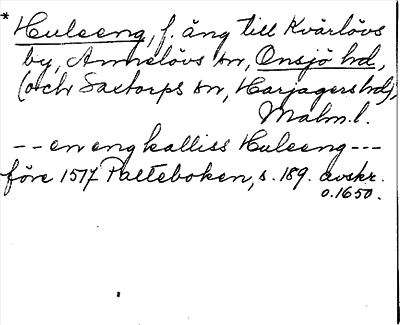 * Huleeng, f. äng till Kvärlövs
by, Annelövs sn, Onsjö hd,
(och Saxtorps sn, Harjagers hd),
Malm.l.
-- en eng kalliss Huleeng ---
före 1517 Palteboken, s. 189. avskr.
o.1650.